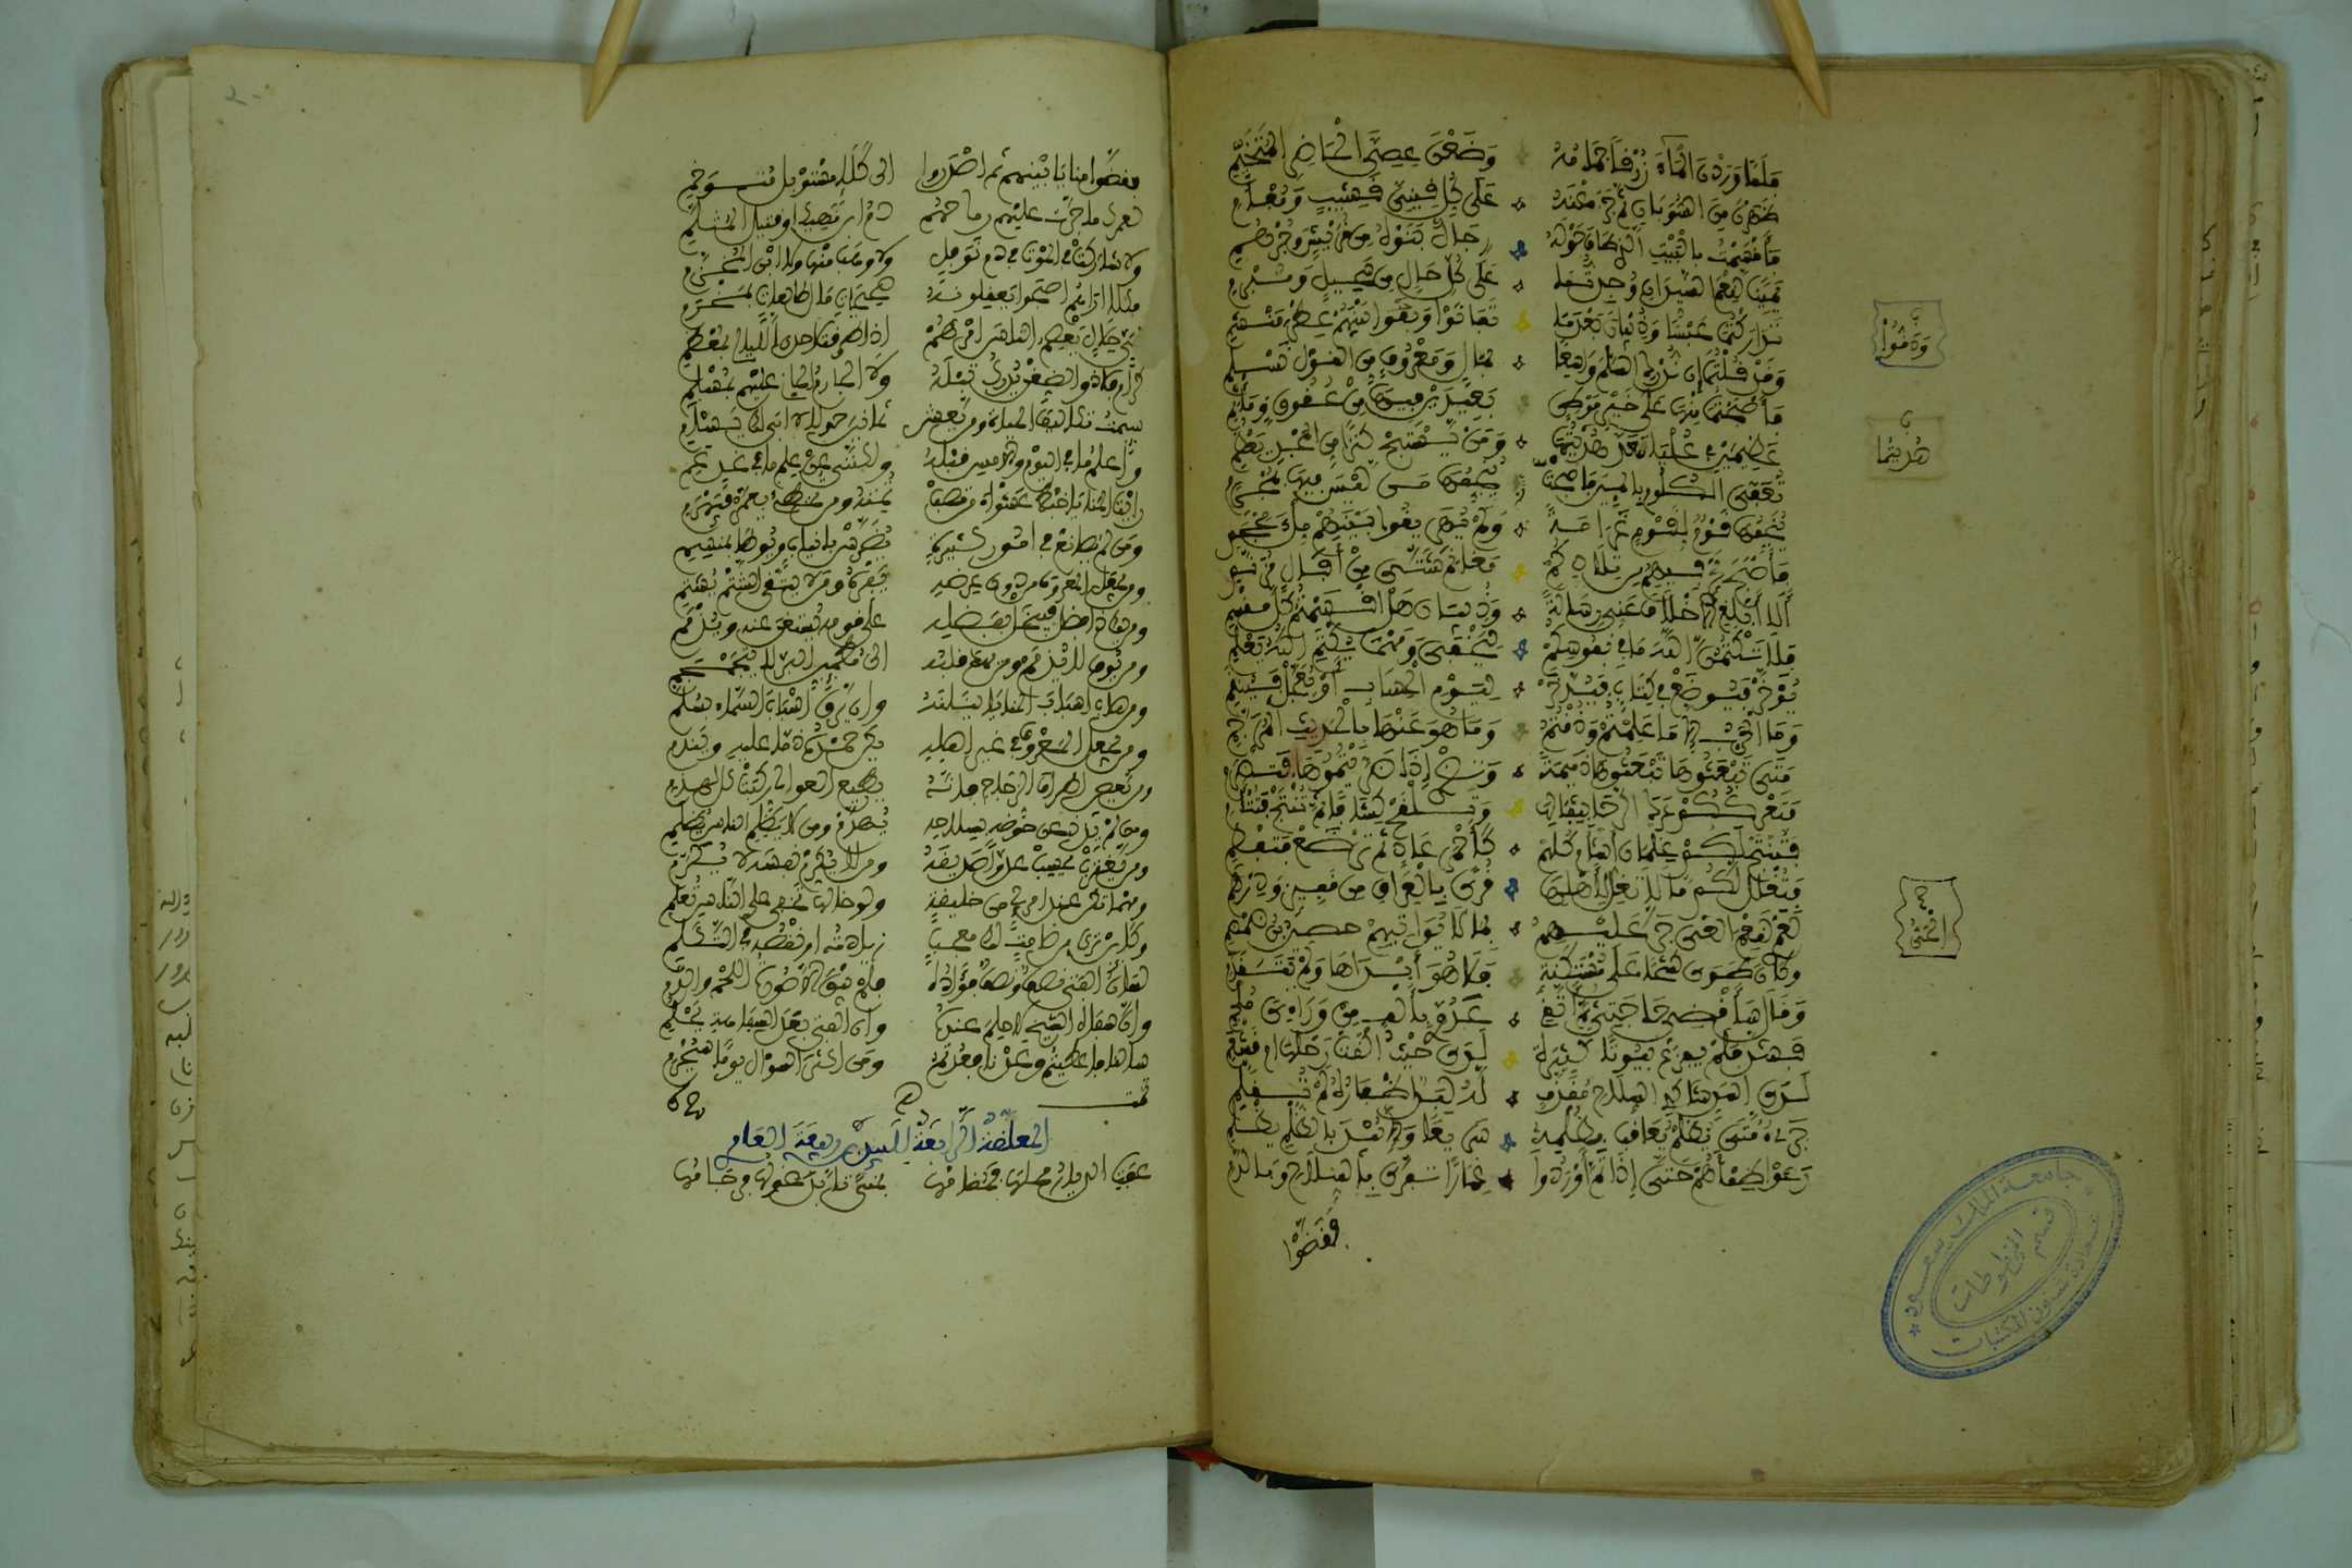 فَلَمَّا وَرَدْنَ الْمَاءَ زُرْقًا جِمَامُهُ وَضَعْنَ عِصِيَّ الْحَاضِرِ الْمُتَخَيِّمِ
ظهرن من السوبان ثم جزعنه على كل قيني قشيب ومفأم
فأقسمت بالبيت الذي طاف حوله رجال بنوه من قريش وجرهم
يمينا لنعم السيدان وجدتما على كل حال من سحيل ومبرم
تداركتما عبسا وذبيان بعدما تفانوا ودقوا بينهم عطر منشم
وقد قلتما إن ندرك السلم واسعا بمال ومعروف من القول نسلم
فأصبحتما منها على خير موطن بعيدين فيها من عقوق ومأثم
عظيمين في عليا معد هديتما ومن يستبح كنزا من المجد يعظم
تعفى الكلوم بالمئين فأصبحت ينجمها من ليس فيها بمجرم
ينجمها قوم لقوم غرامة ولم يهريقوا بينهم ملء محجم
فأصبح يجري فيهم من تلادكم مغانم شتى من إفال مزنم
ألا أبلغ الأحلاف عني رسالة وذبيان هل أقسمتم كل مقسم
فلا تكتمن الله ما في نفوسكم ليخفى ومهما يكتم الله يعلم
يؤخر فيوضع في كتاب فيدخر ليوم الحساب أو يعجل فينقم
وما الحرب إلا ما علمتم وذقتم وما هو عنها بالحديث المرجم
متى تبعثوها تبعثوها ذميمة وتضر إذا ضريتموها فتضرم
فتعرككم عرك الرحى بثفالها وتلقح كشافا ثم تنتج فتتئم
فتنتج لكم غلمان أشأم كلهم كأحمر عاد ثم ترضع فتفطم
فتغلل لكم ما لا تغل لأهلها قرى بالعراق من قفيز ودرهم
لعمري لنعم الحي جر عليهم بما لا يواتيهم حصين بن ضمضم
وكان طوى كشحا على مستكنة فلا هو أبداها ولم يتقدم
وقال سأقضي حاجتي ثم أتقي عدوي بألف من ورائي ملجم
فشد فلم يفزع بيوتا كثيرة لدى حيث ألقت رحلها أم قشعم
لدى أسد شاكي السلاح مقذف له لبد أظفاره لم تقلم
جريء متى يظلم يعاقب بظلمه سريعا وإلا يبد بالظلم يظلم
رعوا ظمأهم حتى إذا تم أوردوا غمارا تفرى بالسلاح وبالدم
فقضوا
ودقوا
هديتما
جامعة الملك سعود
قسم المخطوطات
عمادة شؤون المكتبات
فقضوا منايا بينهم ثم أصدروا إلى كلإ مستوبل متوخم
لعمرك ما جرت عليهم رماحهم دم ابن نهيك أو قتيل المثلم
ولا شاركت في الموت في دم نوفل ولا وهب منها ولا ابن المخزم
فكلا أراهم أصبحوا يعقلونه صحيحات مال طالعات بمخرم
لحي حلال يعصم الناس أمرهم إذا طرقت إحدى الليالي بمعظم
كرام فلا ذو الضغن يدرك تبله ولا الجارم الجاني عليهم بمسلم
سئمت تكاليف الحياة ومن يعش ثمانين حولا لا أبا لك يسأم
وأعلم ما في اليوم والأمس قبله ولكنني عن علم ما في غد عم
رأيت المنايا خبط عشواء من تصب تمته ومن تخطئ يعمر فيهرم
ومن لم يصانع في أمور كثيرة يضرس بأنياب ويوطأ بمنسم
ومن يجعل المعروف من دون عرضه يفره ومن لا يتق الشتم يشتم
ومن يك ذا فضل فيبخل بفضله على قومه يستغن عنه ويذمم
ومن يوف لا يذمم ومن يهد قلبه إلى مطمئن البر لا يتجمجم
ومن هاب أسباب المنايا ينلنه وإن يرق أسباب السماء بسلم
ومن يجعل المعروف في غير أهله يكن حمده ذما عليه ويندم
ومن يعص أطراف الزجاج فإنه يطيع العوالي ركبت كل لهذم
ومن لم يذد عن حوضه بسلاحه يهدم ومن لا يظلم الناس يظلم
ومن يغترب يحسب عدوا صديقه ومن لا يكرم نفسه لا يكرم
ومهما تكن عند امرئ من خليقة ولو خالها تخفى على الناس تعلم
وكائن ترى من صامت لك معجب زيادته أو نقصه في التكلم
لسان الفتى نصف ونصف فؤاده فلم يبق إلا صورة اللحم والدم
وإن سفاه الشيخ لا حلم عنده وإن الفتى بعد السفاهة يحلم
سألنا فأعطيتم وعدنا فعدتم ومن أكثر التسآل يوما سيحرم
تمت
المعلقة الرابعة للبيد بن ربيعة العامري
عفت الديار محلها فمقامها بمنى تأبد غولها فرجامها